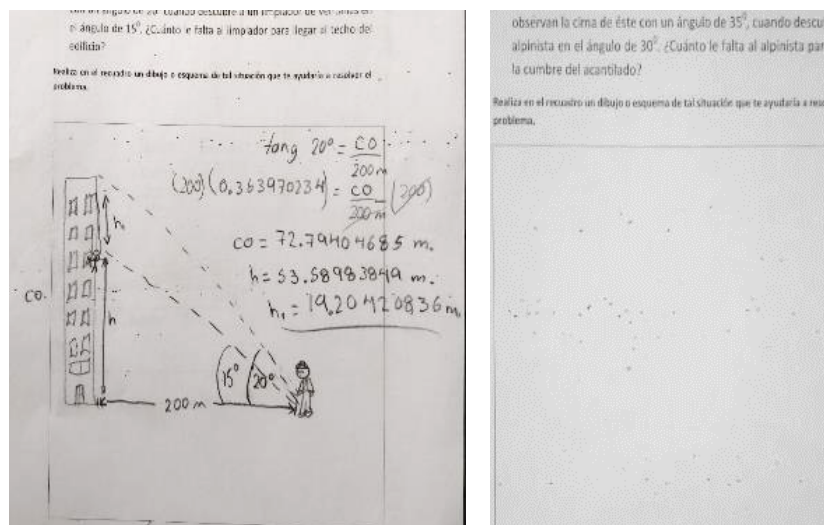 ángulo de 20° cuando descubre a un limpiador de ventanas en
el ángulo de 15°. ¿Cuánto le falta al limpiador para llegar al techo del
edificio?
Realiza en el recuadro un dibujo o esquema de tal situación que te ayudaría a resolver el
problema.
tang 20° = CO
200 m
(200)(0.363970234) = CO (200)
200 m
CO = 72.79404685 m.
h = 53.58983849 m.
h₁ = 19.20420836 m
h₁
CO.
h
15° 20°
200 m
observan la cima de éste con un ángulo de 35°, cuando descu
alpinista en el ángulo de 30°. ¿Cuánto le falta al alpinista par
la cumbre del acantilado?
Realiza en el recuadro un dibujo o esquema de tal situación que te ayudaría a reso
problema.